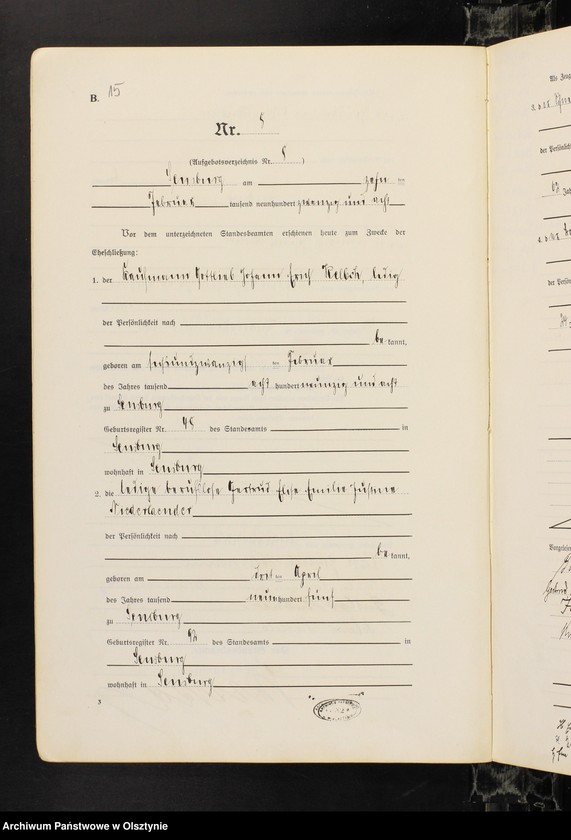 B. 15
Nr. 8
(Aufgebotsverzeichnis Nr. 8)
Sensburg am zehn ten
Februar tausend neunhundert zwanzig und acht
Vor dem unterzeichneten Standesbeamten erschienen heute zum Zwecke der
Eheschließung:
1. der Kaufmann Gottlieb Johann Erich Kelbch, ledig
der Persönlichkeit nach
be kannt,
geboren am sechsundzwanzigsten Februar
des Jahres tausend acht hundert neunzig und acht
zu Sensburg
Geburtsregister Nr. 48 des Standesamts in
Sensburg
wohnhaft in Sensburg
2. die ledige berufslose Gertrud Elise Emilie Justine
Niederlaender
der Persönlichkeit nach
be kannt,
geboren am drei ten April
des Jahres tausend neun hundert fünf
zu Sensburg
Geburtsregister Nr. des Standesamts in
Sensburg
wohnhaft in Sensburg
Als Zeug
der Persönlich
der Persön
Vorgelesen
Archiwum Państwowe w Olsztynie